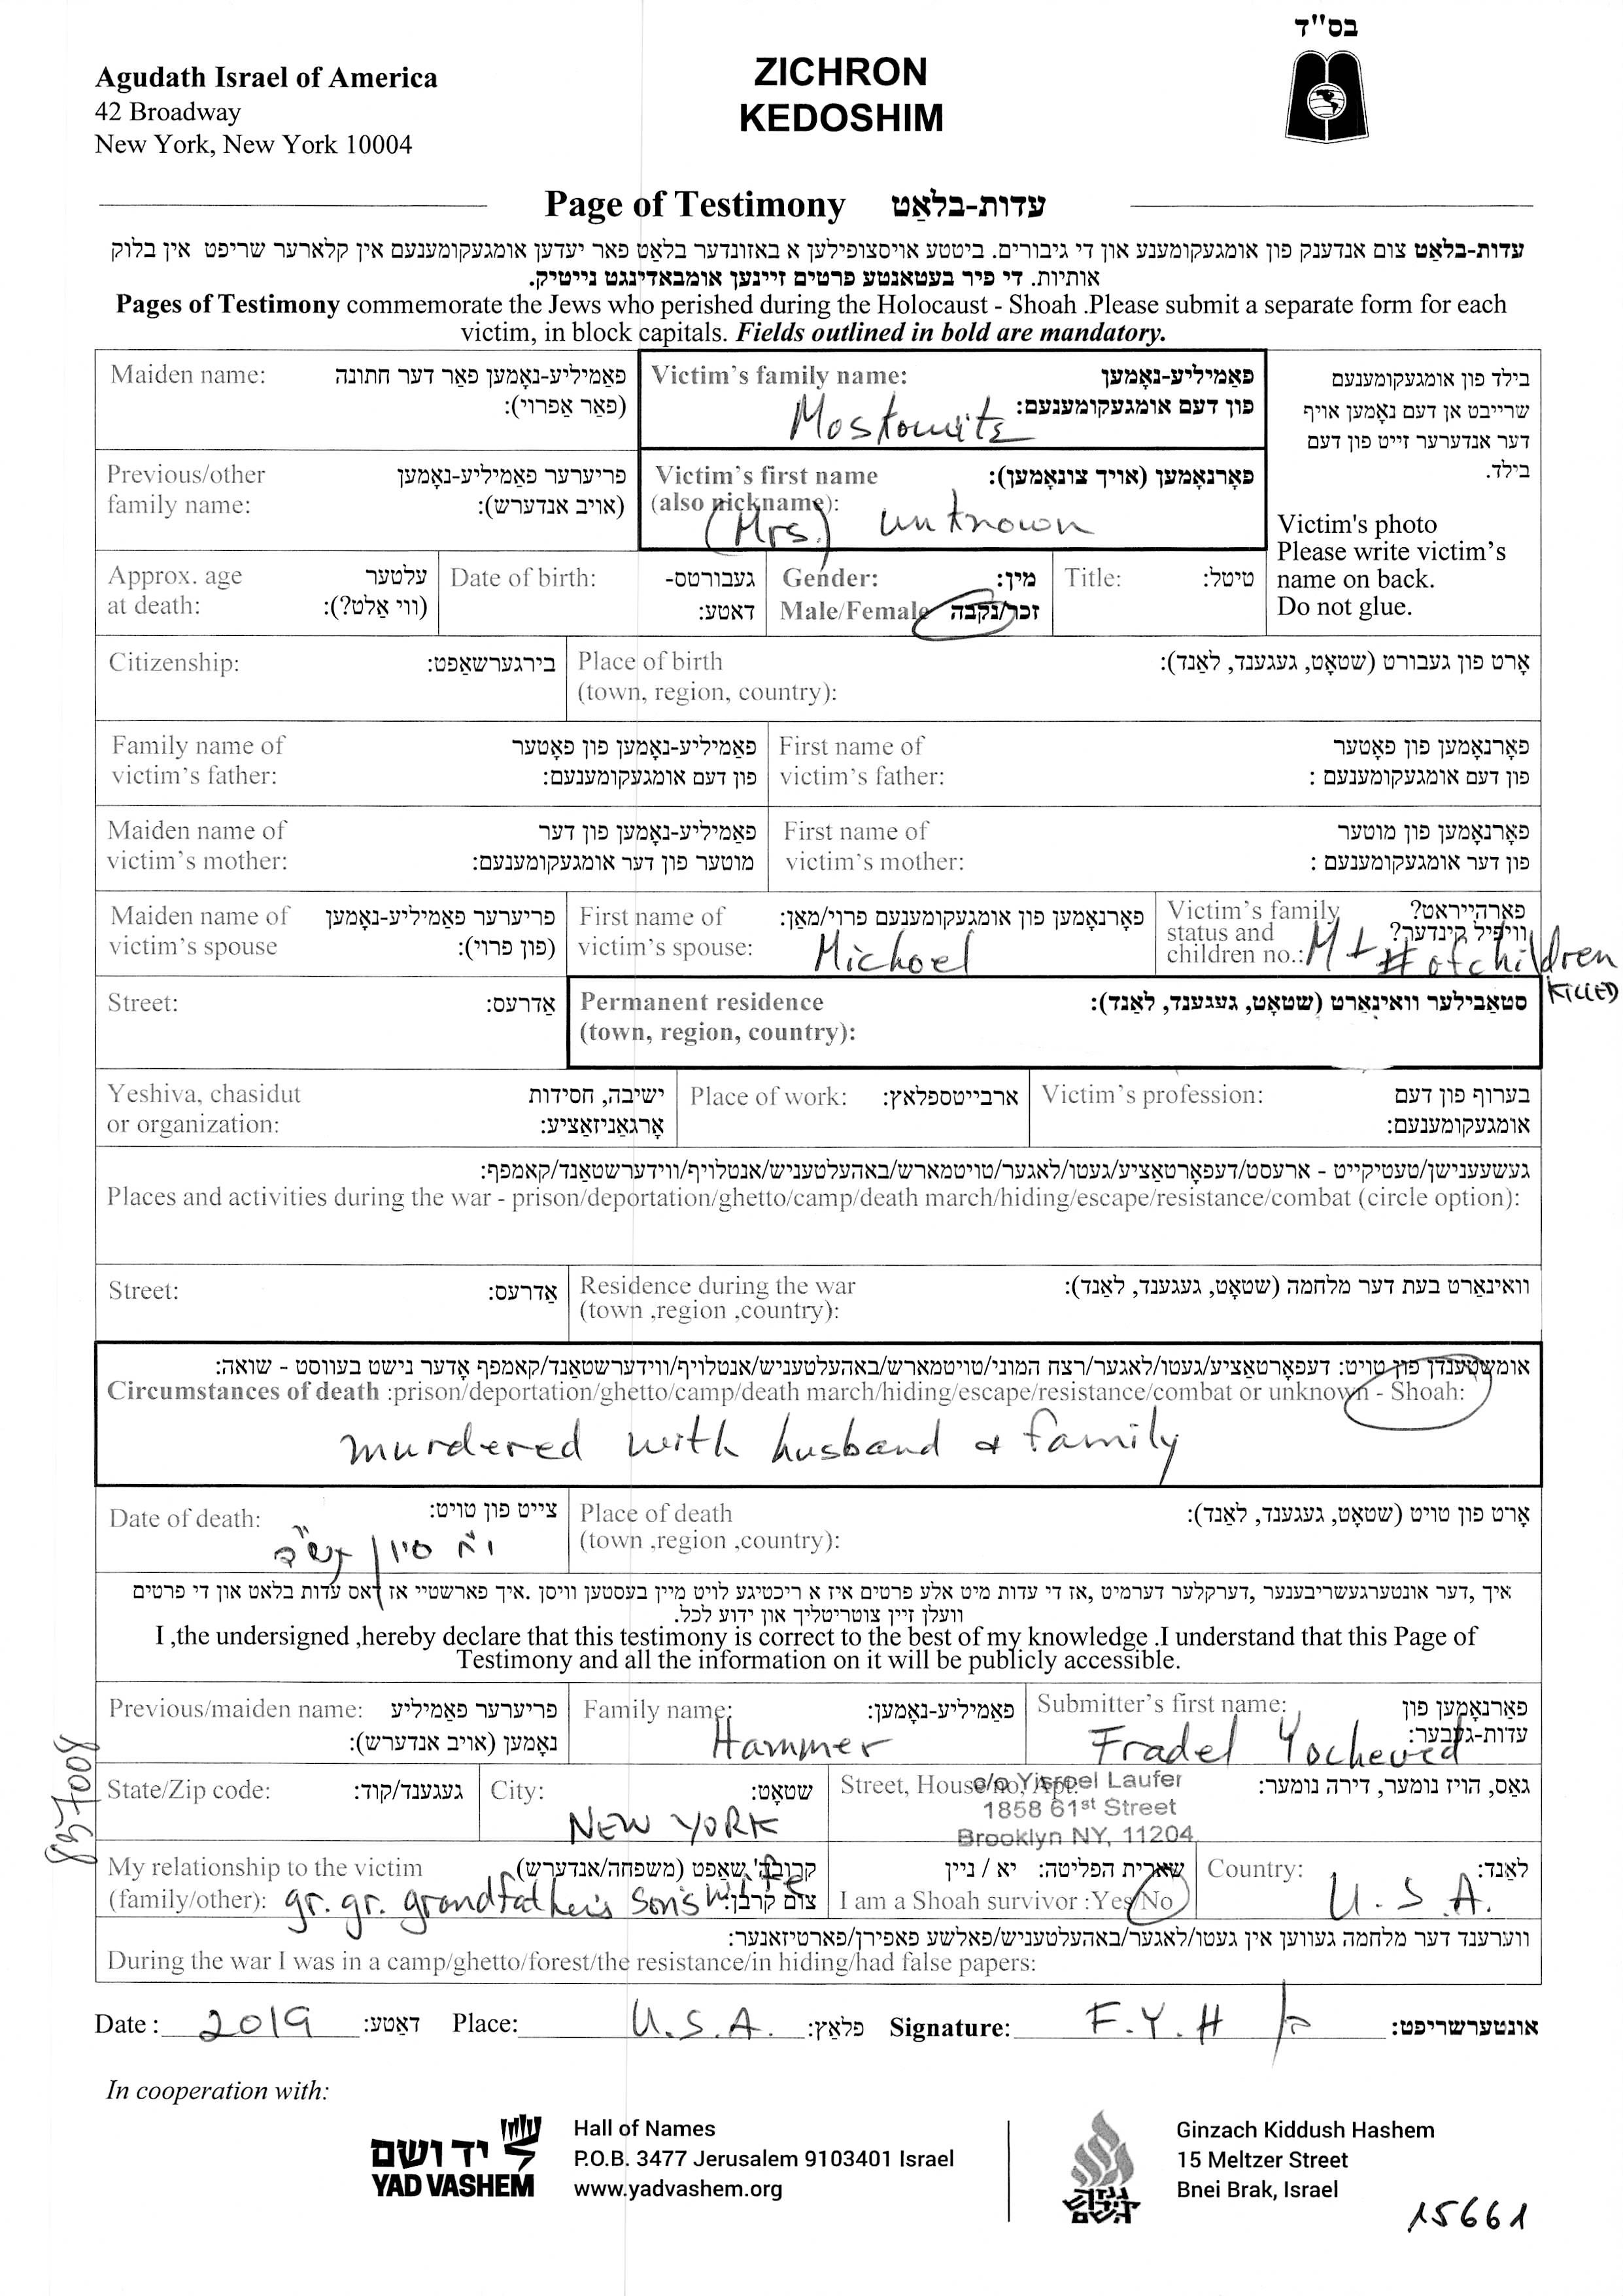 בס"ד
Agudath Israel of America
42 Broadway
New York, New York 10004
ZICHRON
KEDOSHIM
Page of Testimony עדות-בלאַט
עדות-בלאַט צום אנדענק פון אומגעקומענע און די גיבורים. ביטטע אויסצופילען א באזונדער בלאַט פאר יעדען אומגעקומענעם אין קלארער שריפט אין בלוק
אותיות. די פיר בעטאנטע פרטים זיינען אומבאדינגט נייטיק.
Pages of Testimony commemorate the Jews who perished during the Holocaust - Shoah .Please submit a separate form for each
victim, in block capitals. Fields outlined in bold are mandatory.
Maiden name: פאַמיליע-נאָמען פאַר דער חתונה
(פאַר אַפרוי):
Victim's family name: פאַמיליע-נאָמען
פון דעם אומגעקומענעם:
Moskowitz
בילד פון אומגעקומענעם
שרייבט אן דעם נאָמען אויף
דער אנדערער זייט פון דעם
בילד.
Victim's photo
Please write victim's
name on back.
Do not glue.
Previous/other פריערער פאַמיליע-נאָמען
family name: (אויב אנדערש):
Victim's first name פאָרנאָמען (אויך צונאָמען):
(also nickname):
(Mrs.) unknown
Approx. age עלטער
at death: (ווי אַלט?):
Date of birth: געבורטס-
דאטע:
Gender: מין:
Male/Female זכר/נקבה
Title: טיטל:
Citizenship: בירגערשאַפט:
Place of birth אָרט פון געבורט (שטאָט, געגענד, לאַנד):
(town, region, country):
Family name of פאַמיליע-נאָמען פון פאָטער
victim's father: פון דעם אומגעקומענעם:
First name of פאָרנאָמען פון פאָטער
victim's father: פון דעם אומגעקומענעם :
Maiden name of פאַמיליע-נאָמען פון דער
victim's mother: מוטער פון דער אומגעקומענעם:
First name of פאָרנאָמען פון מוטער
victim's mother: פון דער אומגעקומענעם :
Maiden name of פריערער פאַמיליע-נאָמען
victim's spouse (פון פרוי):
First name of פאָרנאָמען פון אומגעקומענעם פרוי/מאַן:
victim's spouse: Michoel
Victim's family פארהייראט?
status and וויפיל קינדער?
children no.: M + # of children
KILLED
Street: אַדרעס:
Permanent residence סטאַבילער וואינאַרט (שטאָט, געגענד, לאַנד):
(town, region, country):
Yeshiva, chasidut ישיבה, חסידות
or organization: אָרגאַניזאַציע:
Place of work: ארבייטספלאץ:
Victim's profession: בערוף פון דעם
אומגעקומענעם:
געשעענישן/טעטיקייט - ארעסט/דעפאָרטאַציע/געטו/לאגער/טויטמארש/באהעלטעניש/אנטלויף/ווידערשטאַנד/קאמפף:
Places and activities during the war - prison/deportation/ghetto/camp/death march/hiding/escape/resistance/combat (circle option):
Street: אַדרעס:
Residence during the war וואינאַרט בעת דער מלחמה (שטאָט, געגענד, לאַנד):
(town ,region ,country):
אומשטענדן פון טויט: דעפאָרטאַציע/געטו/לאגער/רצח המוני/טויטמארש/באהעלטעניש/אנטלויף/ווידערשטאַנד/קאמפף אָדער נישט בעווסט - שואה:
Circumstances of death :prison/deportation/ghetto/camp/death march/hiding/escape/resistance/combat or unknown - Shoah:
murdered with husband & family
Date of death: צייט פון טויט:
סיון
Place of death אָרט פון טויט (שטאָט, געגענד, לאַנד):
(town ,region ,country):
איך ,דער אונטערגעשריבענער ,דערקלער דערמיט ,אז די עדות מיט אלע פרטים איז א ריכטיגע לויט מיין בעסטען וויסן .איך פארשטיי אז דאס עדות בלאט און די פרטים
וועלן זיין צוטריטליך און ידוע לכל.
I ,the undersigned ,hereby declare that this testimony is correct to the best of my knowledge .I understand that this Page of
Testimony and all the information on it will be publicly accessible.
Previous/maiden name: פריערער פאַמיליע
נאָמען (אויב אנדערש):
Family name: פאַמיליע-נאָמען:
Hammer
Submitter's first name: פאָרנאָמען פון
עדות-געבער:
Fradel Yocheved
State/Zip code: געגענד/קוד:
City: שטאָט:
NEW YORK
Street, House no, Apt: גאַס, הויז נומער, דירה נומער:
c/o Yisroel Laufer
1858 61st Street
Brooklyn NY, 11204
My relationship to the victim קרובה'שאַפט (משפחה/אנדערש)
(family/other): צום קרבן:
gr. gr. grandfather's son's wife
שארית הפליטה: יא / ניין
I am a Shoah survivor :Yes/No
Country: לאַנד:
U.S.A.
ווערענד דער מלחמה געווען אין געטו/לאגער/באהעלטעניש/פאלשע פאפירן/פארטיזאנער:
During the war I was in a camp/ghetto/forest/the resistance/in hiding/had false papers:
Date : 2019 דאַטע: Place: U.S.A. פלאַץ: Signature: F.Y.H אונטערשריפט:
In cooperation with:
יד ושם
YAD VASHEM
Hall of Names
P.O.B. 3477 Jerusalem 9103401 Israel
www.yadvashem.org
גנזך
קידוש
השם
Ginzach Kiddush Hashem
15 Meltzer Street
Bnei Brak, Israel
15661